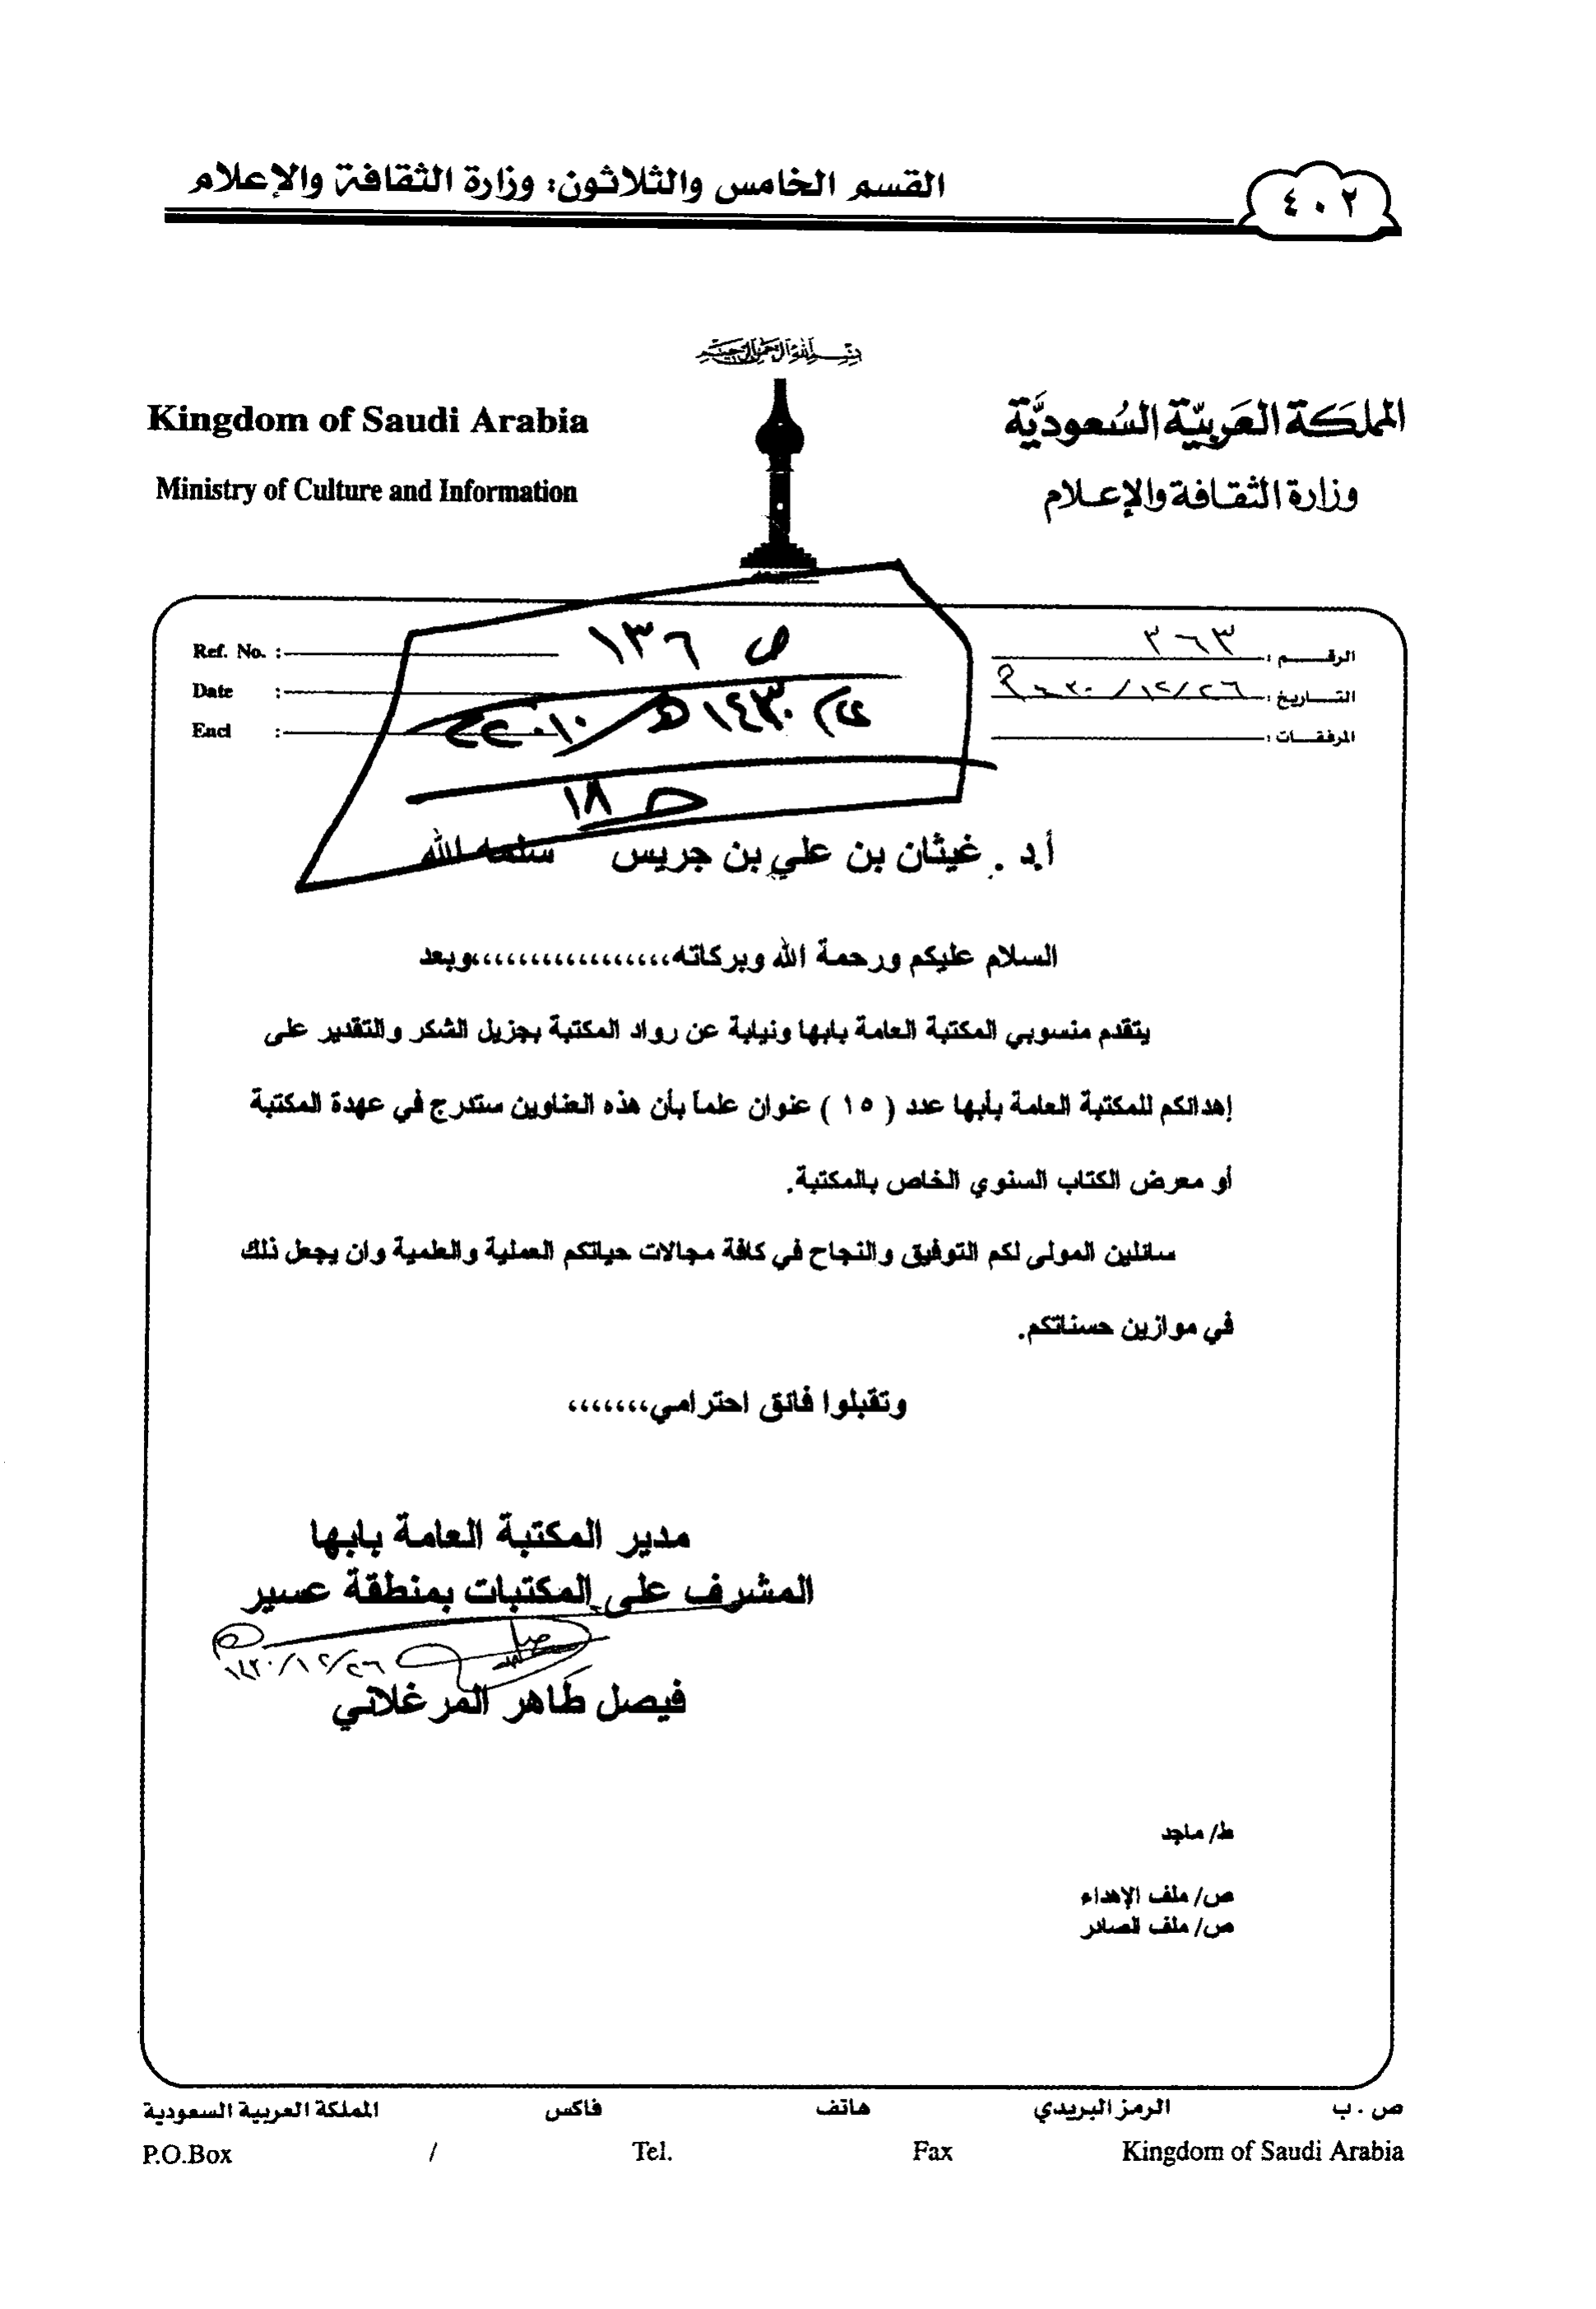 القسم الخامس والثلاثون: وزارة الثقافة والإعلام
٤٠٢
بسم الله الرحمن الرحيم
Kingdom of Saudi Arabia
المملكة العربية السعودية
Ministry of Culture and Information
وزارة الثقافة والإعلام
Ref. No. :
ص ١٣٦
الرقم : ٣٦٣
Date :
التاريخ : ٢٦/١٢/
Encl :
المرفقات :
١٨
أ.د. غيثان بن علي بن جريس سلمه الله
السلام عليكم ورحمة الله وبركاته،،،،،،،،،،،،،،،،،وبعد
يتقدم منسوبي المكتبة العامة بابها ونيابة عن رواد المكتبة بجزيل الشكر والتقدير على
إهدائكم للمكتبة العامة بأبها عدد ( ١٥ ) عنوان علماً بأن هذه العناوين ستدرج في عهدة المكتبة
أو معرض الكتاب السنوي الخاص بالمكتبة.
سائلين المولى لكم التوفيق والنجاح في كافة مجالات حياتكم العملية والعلمية وان يجعل ذلك
في موازين حسناتكم.
وتقبلوا فائق احترامي،،،،،،،
مدير المكتبة العامة بابها
المشرف على المكتبات بمنطقة عسير
١٤٣٠/١٢/٢٦
فيصل طاهر المرغلاني
ط/ ماجد
ص/ ملف الإهداء
ص/ ملف الصادر
ص . ب الرمز البريدي هاتف فاكس المملكة العربية السعودية
P.O.Box / Tel. Fax Kingdom of Saudi Arabia